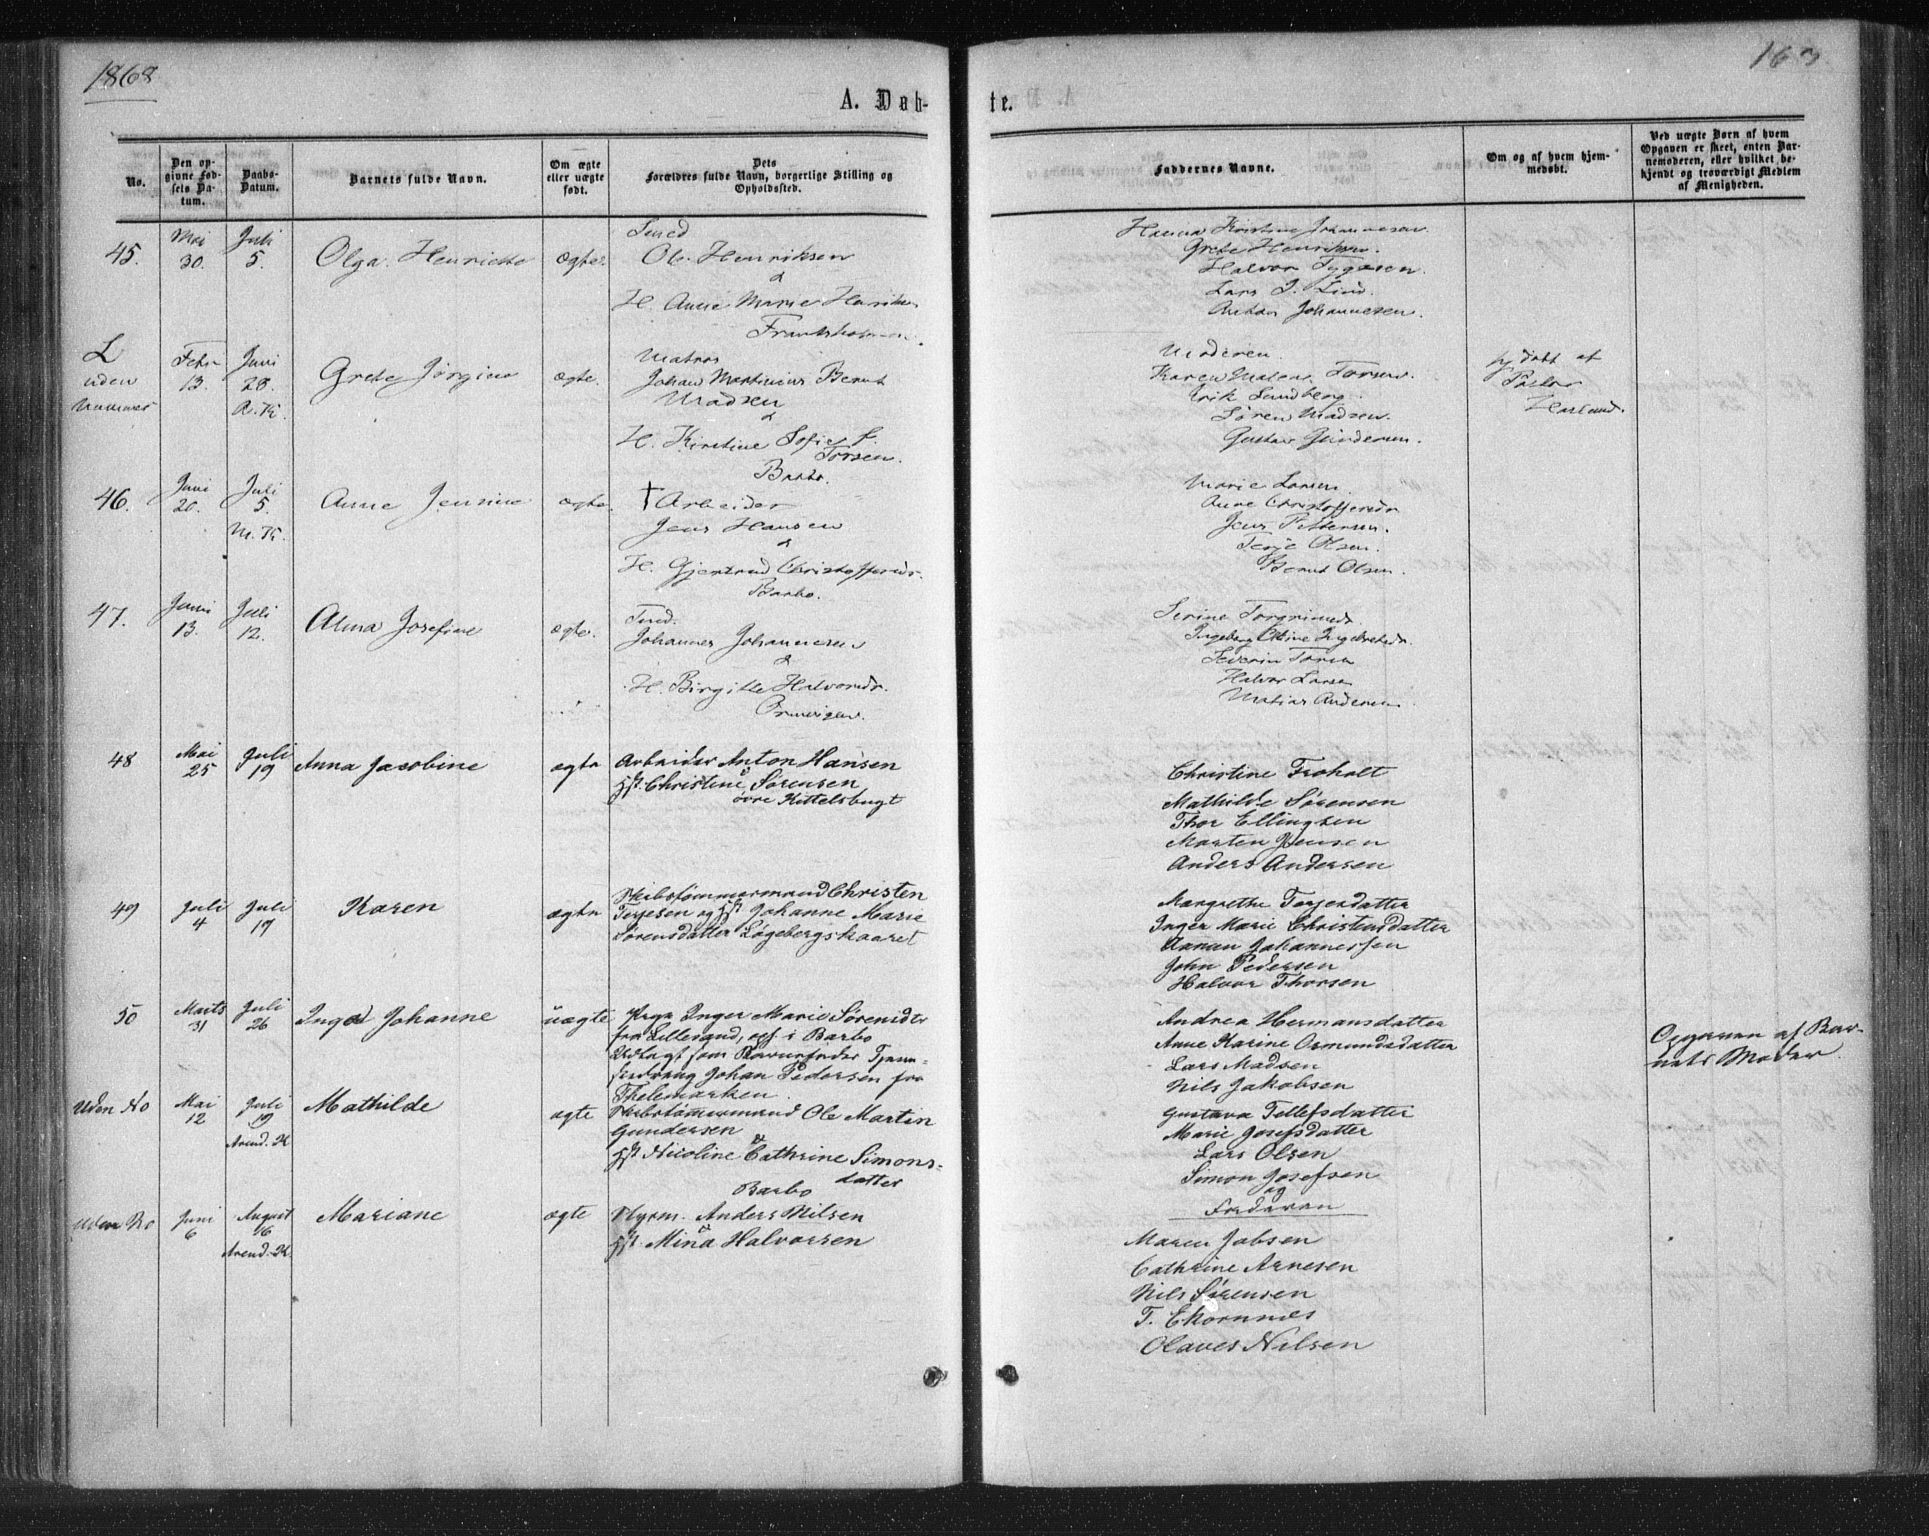 1868
163
A. Døb-
te.
No.
Den op-
givne Fød-
sels Da-
tum.
Daabs-
Datum.
Barnets fulde Navn.
Om ægte
eller uægte
født.
Dets
Forældres fulde Navn, borgerlige Stilling og
Opholdssted.
Faddernes Navne.
Om og af hvem hjem-
medøbt.
Ved uægte Børn af hvem
Opgaven er skeet, enten Bar-
nemoderen, eller hvilket be-
kjendt og troværdigt Medlem
af Menigheden.
45.
Mai
30.
Juli
5.
Olga Henriette
ægte.
Smed
Ole Henriksen
&
H. Anne Marie
Hanna Kristine Johannesen
Grete Henriksen.
Halvor Tygesen.
Lars J. Lind.
Anton Johannesen.
L
uden
Nummer
Febr
13.
Juni
28.
A. K.
Grete Jørgine
ægte.
Matros
Johan Martinius Bernt
Madsen
&
H. Kirstine Sofie J.
Torsen.
Barbo.
Moderen.
Karen Torsen.
Erik Sundberg.
Søren Madsen.
Gustav Gundersen.
hj døbt af
Pastor
46.
Juni
20.
Juli
5.
M. K.
Anne Jensine
ægte.
† Arbeider
Jens Hansen
&
H. Gjertrud Christoffersdr.
Barbo.
Marie Larsen.
Anne Christoffersdr
Jens Pettersen.
Terje Olsen.
Bernt Olsen.
47.
Juni
13.
Juli
12.
Alma Josefine
ægte.
Tind.
Johannes Johannesen
&
H. Birgitte Halvorsdr.
Serine Torgrimsdr.
Ingeborg Oline
Severin Torsen
Halvor Larsen
Matias Andersen
48
Mai
25
Juli
19
Anna Jacobine
ægte
Arbeider Anton Hansen
&
Hst. Christine Sørensen
øvre Kittelsbugt
Christine Froholt
Mathilde Sørensen
Thor Ellingsen
Morten Jensen
Anders Andersen
49
Juli
4
Juli
19
Karen
ægte
Skibstømmermand Christen
Terjesen og Hst Johanne Marie
Sørensdatter Løgebergskaaret
Margrethe Terjesdatter
Inger Marie Christensdatter
Aanon Johannessen
John Pedersen
Halvor Thorsen
50
Marts
31
Juli
26
Inga Johanne
uægte
Pige Inger Marie Sørensdtr
fra Lillesand, opf. i Barbo
Udlagt som Barnefader Tjene-
stedreng Johan Pedersen fra
Thelemarken.
Andrea Hermansdatter
Anne Karine Osmundsdatter
Lars Madsen
Nils Jakobsen
Opgaven af Bar-
nets Moder.
Uden No
Mai
12
Juli
19
Arend. K
Mathilde
ægte
Skibstømmermand Ole Martin
Gundersen
&
Hst Nicoline Cathrine Simons-
datter
Barbo
Gustava Tellefsdatter
Marie Josefsdatter
Lars Olsen
Simon Josefsen
og
Faderen
Uden No
Juni
6
August
16
Arend. K
Mariane
ægte
Styrm. Anders Nilsen
&
Hst. Mina Halvorsen
Maren Jobsen
Cathrine Arnesen
Nils Sørensen
T. Ekornnes
Olaves Nilsen